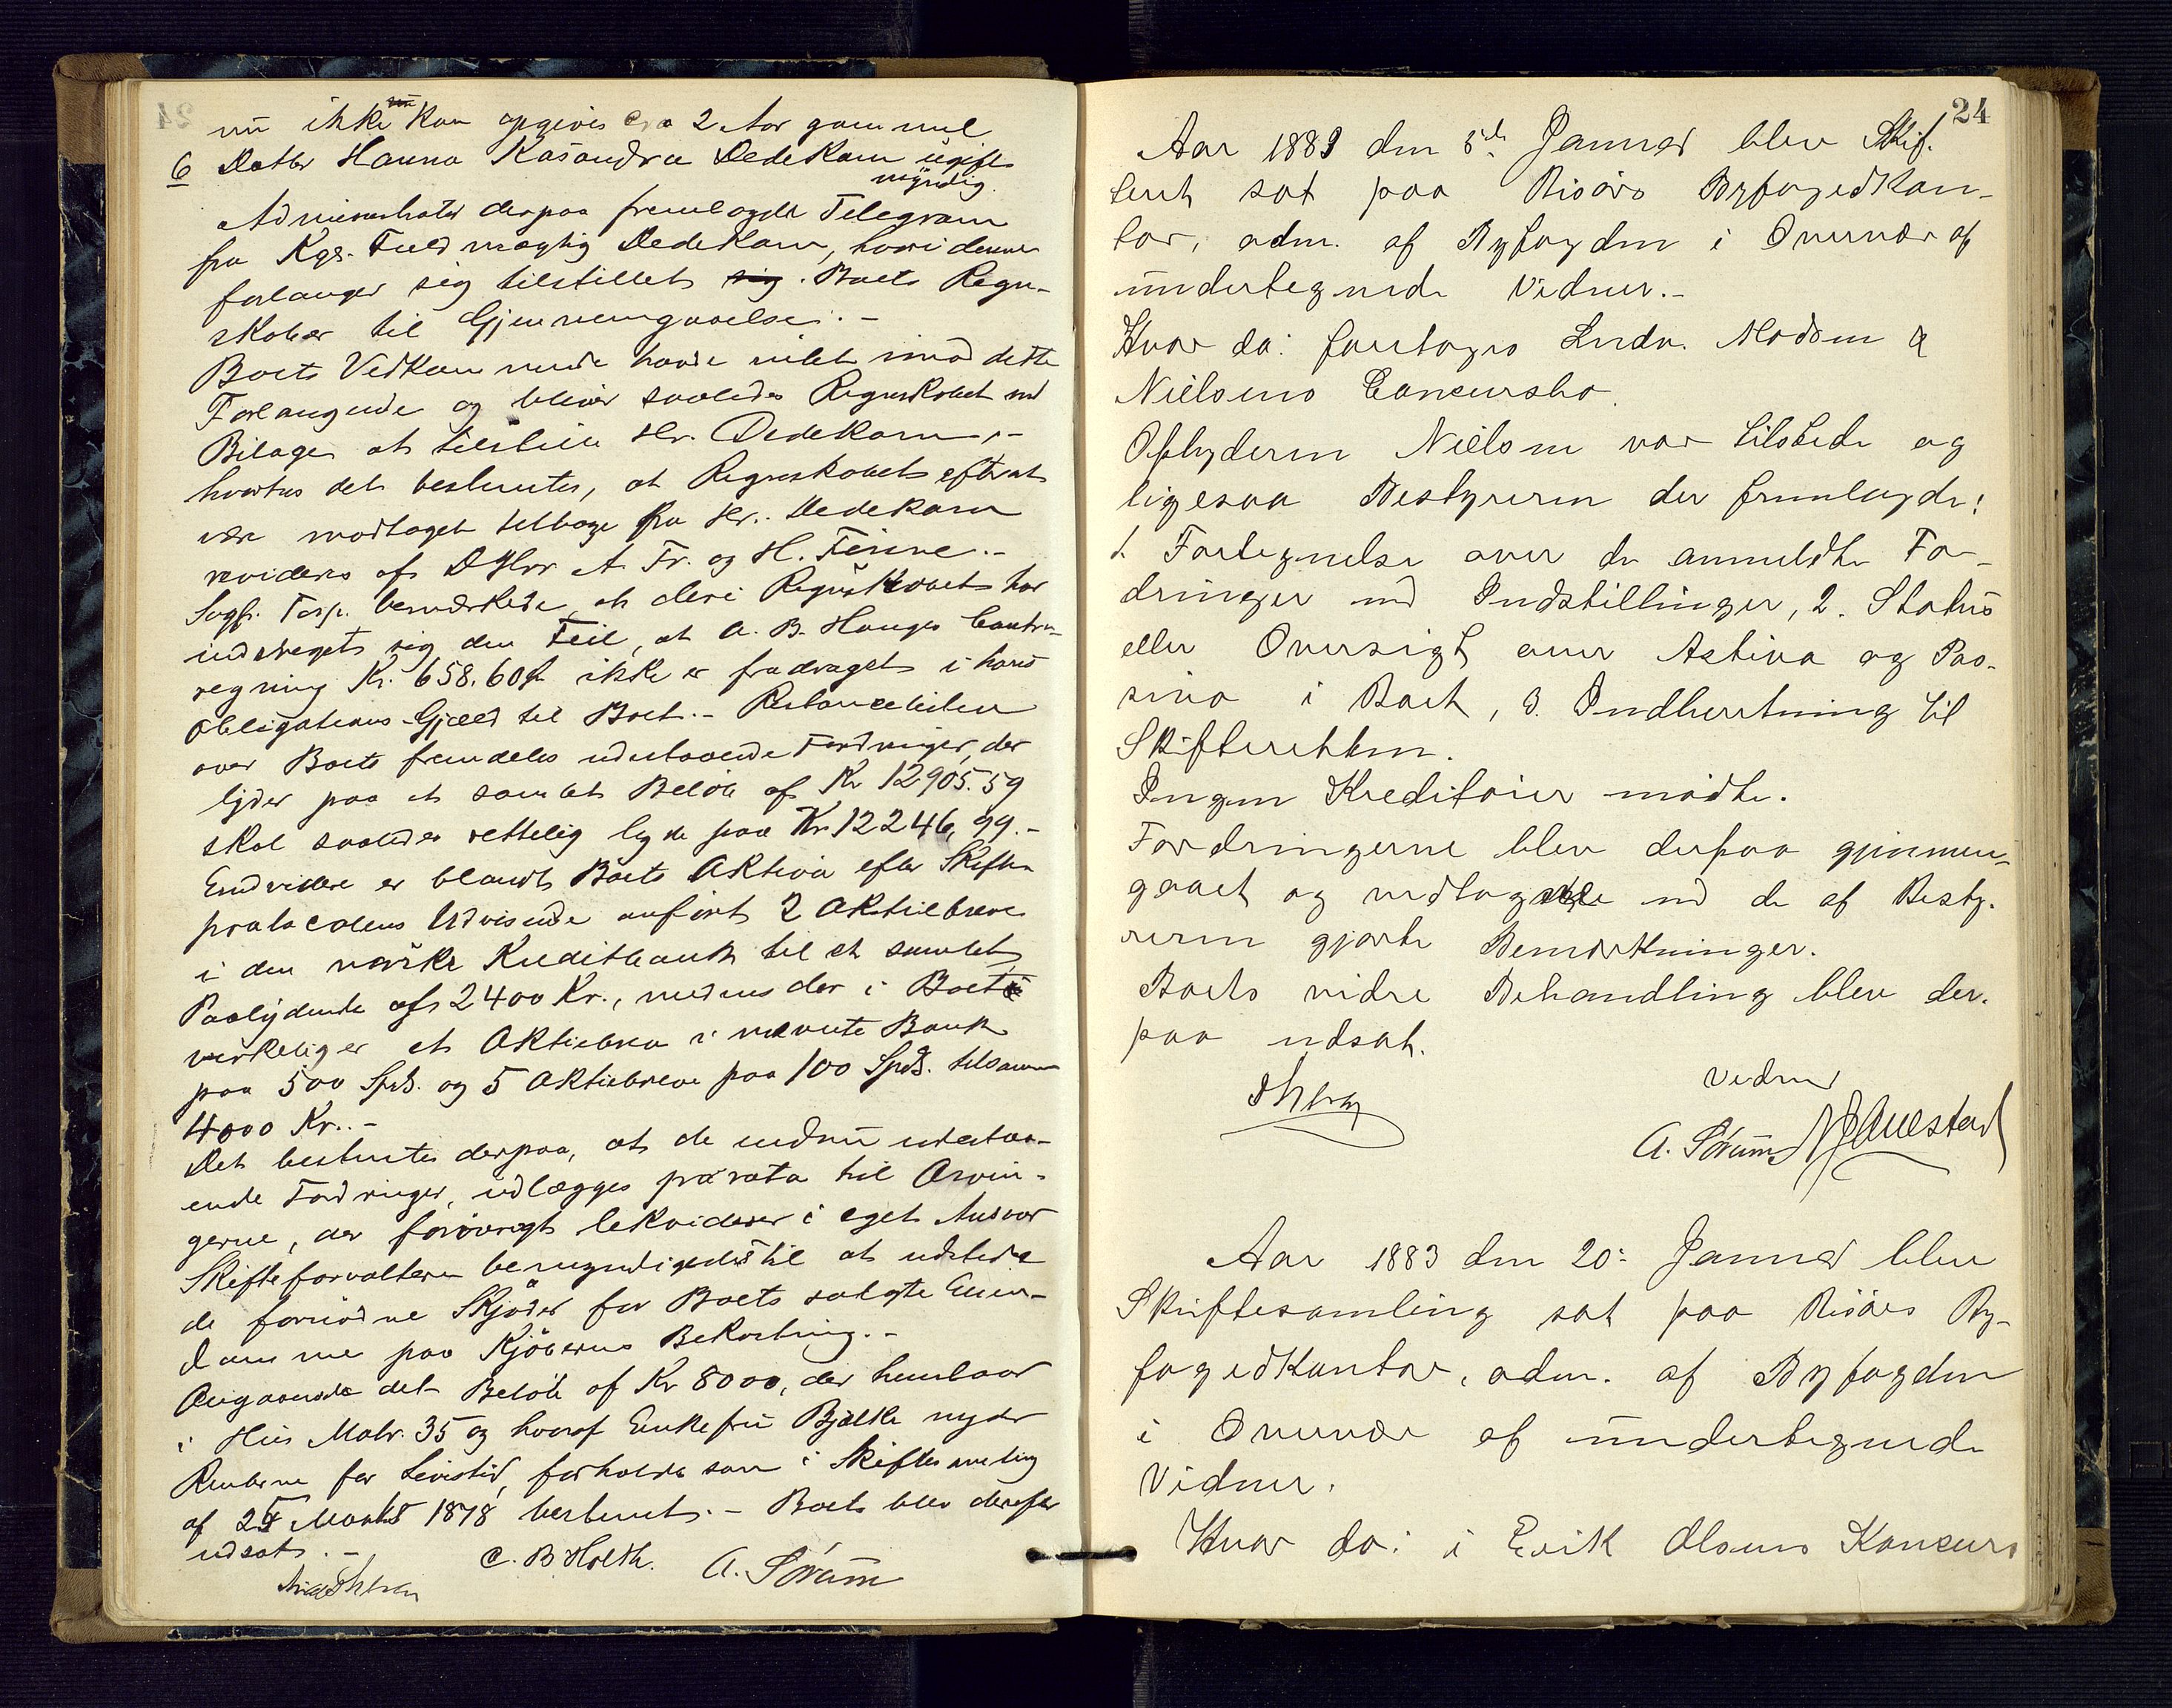 nu ikke kan opgives ca 2 Aar gammel
6 Datter Hanna Kasandra Dedekam ugift
myndig.
Administrator derpaa fremlagde Telegram
fra Kgs. Fuldmægtig Dedekam, hvori denne
forlanger sig tilstillet sig. Boets Regn-
skaber til Gjennemgaaelse. -
Boets Vedkommende havde intet imod dette
Forlangende og bliver saaledes Regnskabet md
Bilager at tilstille Hr. Dedekam, -
hvorhos det bestemtes, at Regnskabet efterat
være modtaget tilbage fra Hr. Dedekam
revideres af DHrr A. Fr. og H. Finne. -
Sagf. Tasp. bemærkede, at deri Regnskabet har
indsneget sig den Feil, at A. B. Hauges Contra-
regning Kr. 658.60 ikke er fradraget i hans
Obligations-Gjæld til Boet. - Restancelisten
over Boets fremdeles udestaaende Fordringer, der
lyder paa et samlet Beløb af Kr 12905.59
skal saaledes rettelig lyde paa Kr. 12246,99. -
Endvidere er blandt Boets Aktiva efter Skifte-
protocolens Udvisende anført 2 Aktiebreve
i den norske Kreditbank til et samlet
Paalydende af 2400 Kr., medens der i Boet
virkelig er et Aktiebrev i nævnte Bank
paa 500 Spd. og 5 Aktiebreve paa 100 Spd. tilsammen
4000 Kr. -
Det bestemtes derpaa, at de endnu udestaa-
ende Fordringer, udlægges pro rata til Arvin-
gerne, der forøvrigt likviderer i eget Ansvar
Skifteforvalteren bemyndigedes til at udstede
de fornødne Skjøder for Boets solgte Eien-
domme paa Kjøbernes Bekostning. -
Angaaende det Beløb af Kr 8000, der henstaar
i Hus Matr. 35 og hvoraf Enkefru Bjelke nyder
Renterne for Livstid, forholdes som i Skiftesamling
af 25 Marts 1878 bestemt. - Boet blev derefter
udsat. -
C. B. Holth. A. Sørum
24
Aar 1883 den 5de Januar blev Skif-
teret sat paa Risørs Byfogedkon-
tor, adm. af Byfogden i Overvær af
undertegnede Vidner. -
Hvor da: foretoges Endr. Madsen &
Nielsens Concursbo.
Opbyderen Nielsen var tilstede og
ligesaa Bestyreren der fremlagde:
1. Fortegnelse over de anmeldte For-
dringer md Indstillinger, 2. Status
eller Oversigt over Activa og Pas-
siva i Boet, 3. Indberetning til
Skifteretten.
Ingen Kreditorer mødte.
Fordringerne blev derpaa gjennem-
gaaet og vedtagne md de af Besty-
reren gjorte Bemærkninger.
Boets vidre Behandling blev der-
paa udsat.
Vidner
A. Sørum
Aar 1883 den 20: Januar blev
Skiftesamling sat paa Risørs By-
fogedkontor, adm. af Byfogden
i Overvær af undertegnede
Vidner.
Hvor da: i Erik Olsens Konkurs